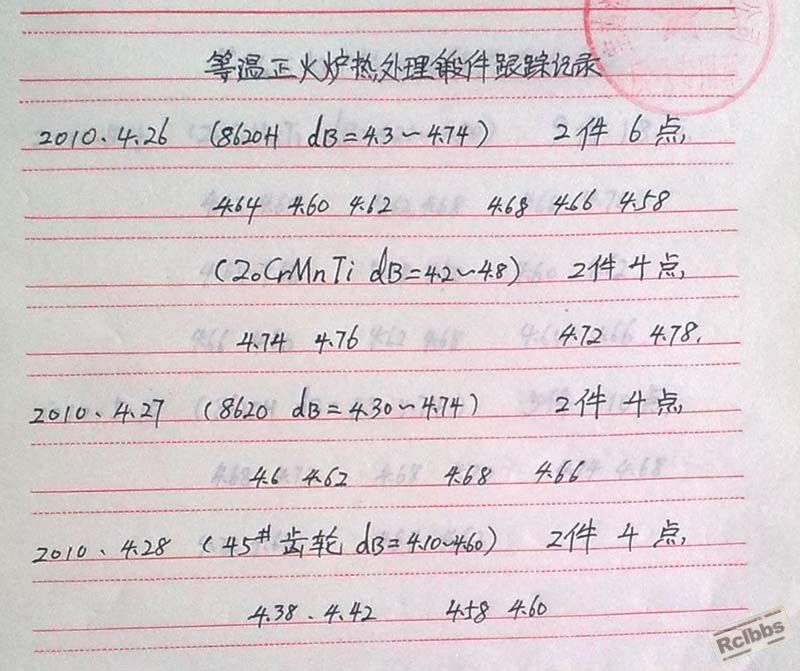 等温正火炉热处理锻件跟踪记录
2010.4.26 (8620H dB=4.3~4.74) 2件 6点,
4.64 4.60 4.62 4.68 4.66 4.58
(20CrMnTi dB=4.2~4.8) 2件 4点,
4.74 4.76 4.72 4.78.
2010.4.27 (8620 dB=4.30~4.74) 2件 4点,
4.6 4.62 4.68 4.66
2010.4.28 (45# 齿轮 dB=4.10~4.60) 2件 4点,
4.38.4.42 4.58 4.60
Rclbbs